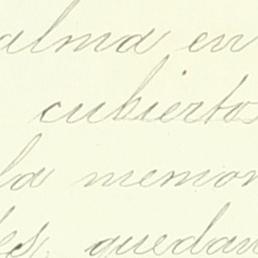 alma en
cubiertos
la memor
les, quedan